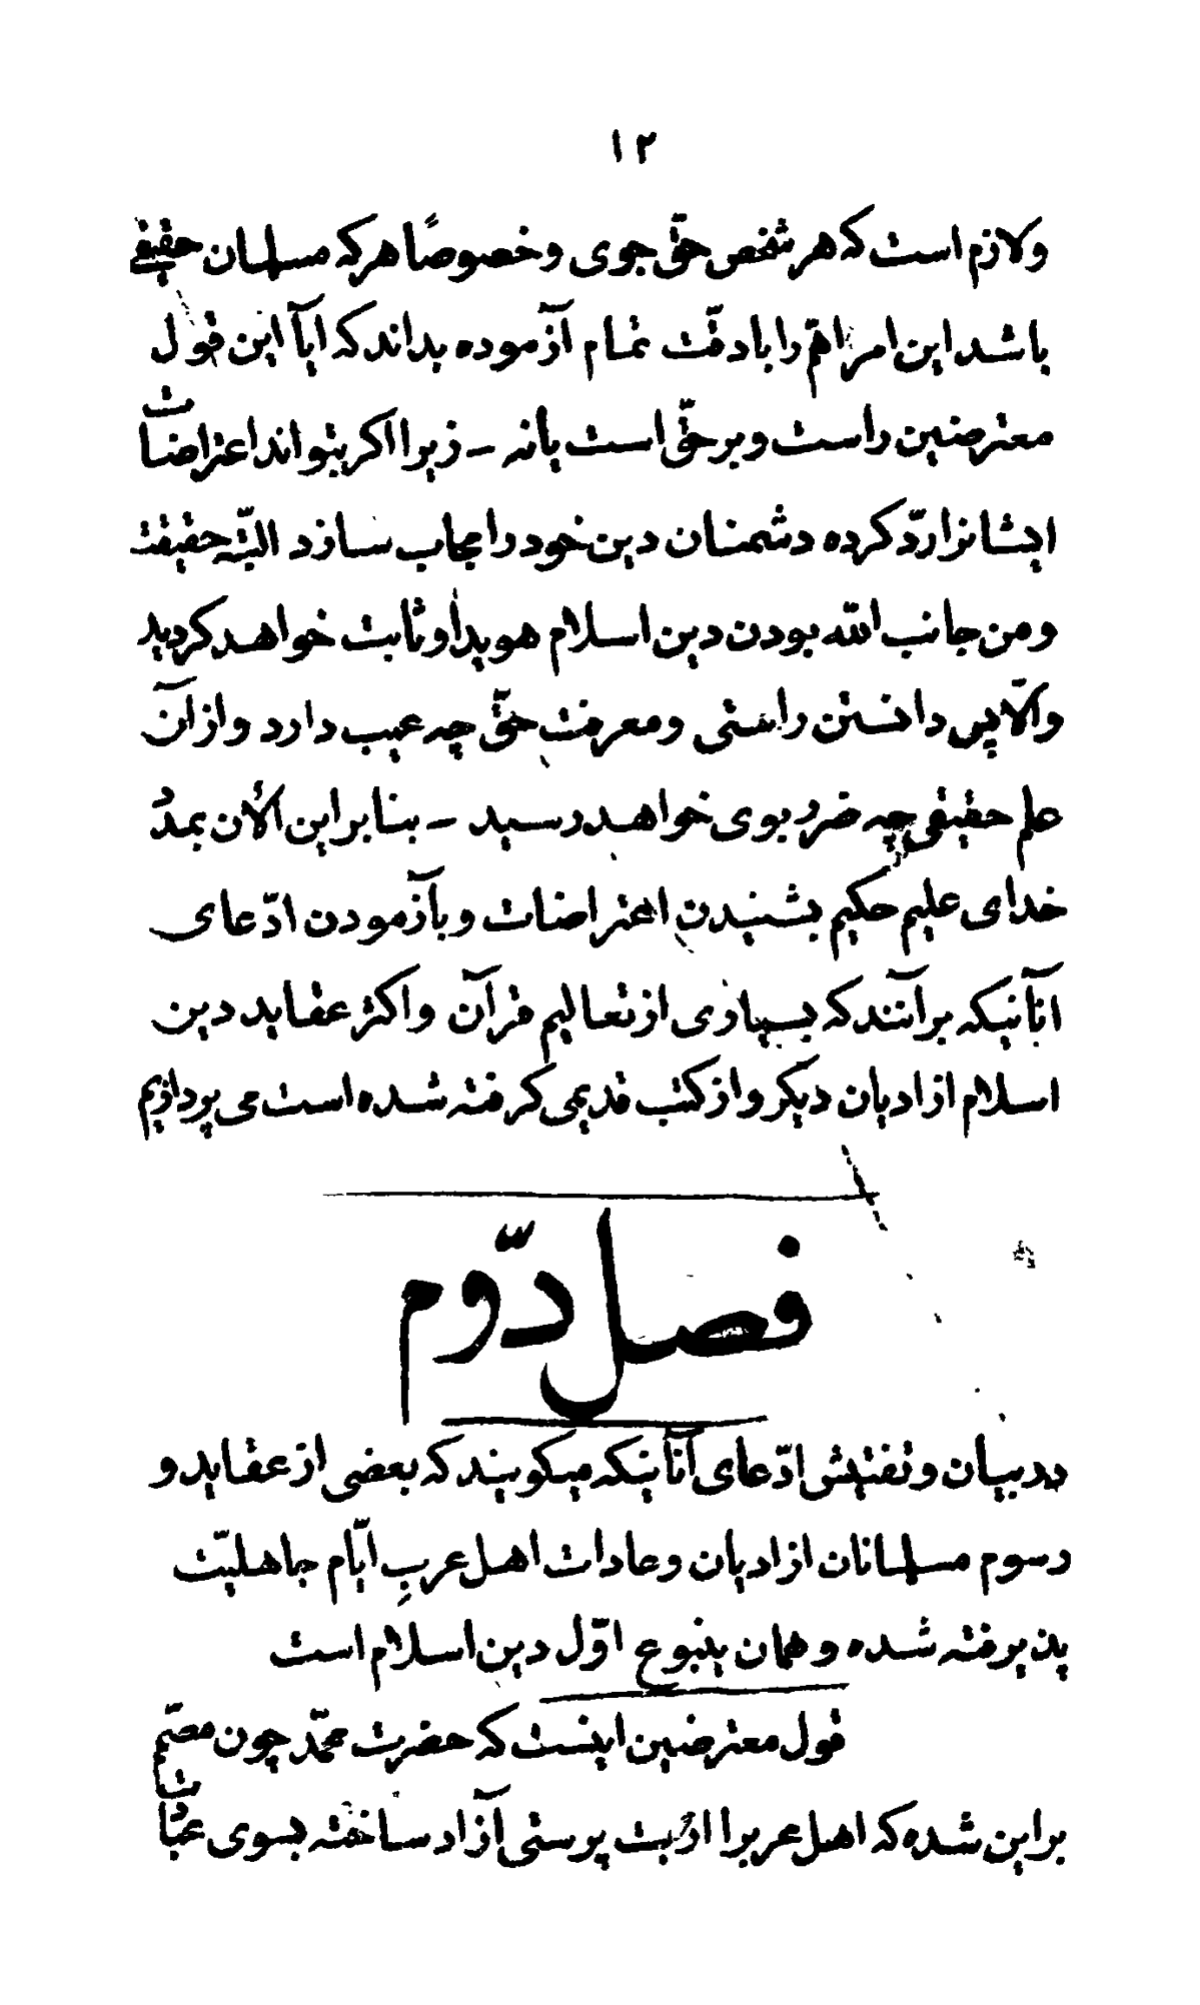 ۱۲
و لازم است که هر شخص حقّ جوی و خصوصًا هر که مسلمان حقیقی
باشد این امر اهمّ را با دقّت تمام آزموده بداند که ایا این قول
معترضین راست و بر حقّ است یا نه – زیرا اکر بتواند اعتراضات
ایشانرا ردّ کرده دشمنان دین خود را مجاب سازد البتّه حقیقت
و من جانب الله بودن دین اسلام هویدا و ثابت خواهد کردید
و الّا پس دانستن راستی و معرفت حقّ چه عیب دارد و از آن
علم حقیقی چه ضرر بوی خواهد رسید – بنابر این الأن بمدد
خدای علیم حکیم بشنیدن اعتراضات و بآزمودن ادّعای
آنانیکه برآنند که بسیاری از تعالیم قرآن و اکثر عقاید دین
اسلام از ادیان دیکر و از کتب قدیمی کرفته شده است می پردازیم
فصل دوّم
در بیان و تفتیش ادّعای آنانیکه میکویند که بعضی از عقاید و
رسوم مسلمانان از ادیان و عادات اهل عربِ ایّام جاهلیّت
پذیرفته شده و همان ینبوع اوّل دین اسلام است
قول معترضین اینست که حضرت محمّد چون مصمّم
بر این شده که اهل عربرا از بت پرستی آزاد ساخته بسوی عبادت